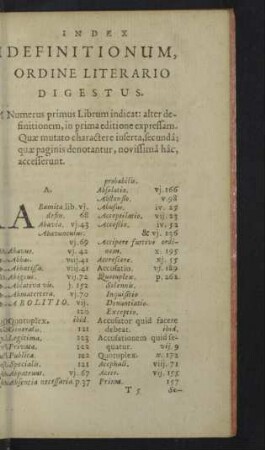 INDEX
DEFINITIONUM,
ORDINE LITERARIO
DIGESTUS.
Numerus primus Librum indicat: alter de-
finitionem, in prima editione expressam.
Quæ mutato charactere inserta, secundâ;
quæ paginis denotantur, novissimâ hâc,
accesserunt.
A.
A Ramita lib. vj.
68
Abavia, vj. 43
Abavunculus.
vj. 69
Abavus, vj. 42
vij. 41
vij. 42
vij. 72
j. 152
vj. 70
ABOLITIO. vij.
120
Quotuplex. ibid.
Generalis. 121
Legitima. 123
Privata. 122
Publica. 122
Specialis. 121
vj. 67
Absentia necessaria p. 37
probabilis.
Absolutio. vj. 166
v. 98
Abusus. iv. 25
Acceptilatio, vij. 23
Accessio, iv. 52
& vj. 156
Accipere furtivo ordi-
nem. x. 195
xj. 55
Accusatio. vj. 189
Quotuplex. p. 262
solemnis.
Inquisitio
Denuntiatio.
Exceptio.
Accusator quid facere
debeat. ibid.
Accusationem quid se-
quatur. vij. 9
Quotuplex. iv. 172
Acephali. viij. 71
vj. 155
157
T 5 &-